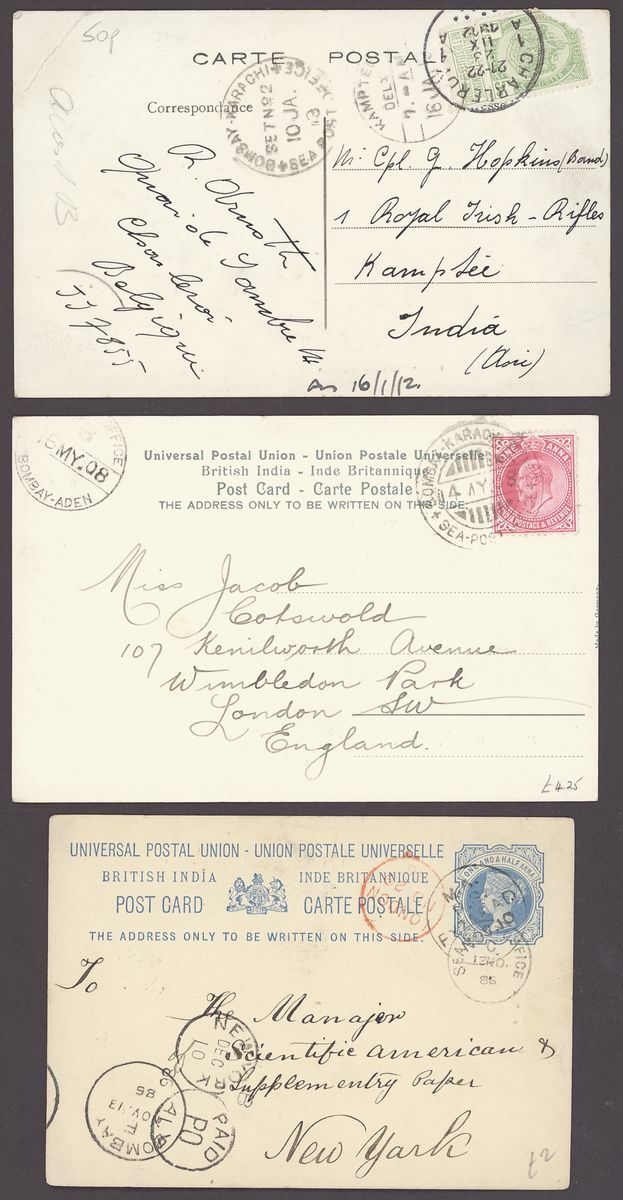 50p
CARTE POSTALE
Correspondance
BOMBAY-KARACHI
SET Nº2
10 JA.
13
SEA POST OFFICE
KAMPTEE
DELY
7.-A.M
16 JA
CHARLEROI
1 A
21-22
1912
R.
Quai de Sambre
Charleroi
Belgique
Mr Cpl. G. Hopkins (Band)
1 Royal Irish-Rifles
Kamptee
India
(Asie)
16/1/12.
OFFICE
16 MY.08
BOMBAY-ADEN
Universal Postal Union - Union Postale Universelle
British India - Inde Britannique
Post Card - Carte Postale
THE ADDRESS ONLY TO BE WRITTEN ON THIS SIDE.
BOMBAY-KARACHI
SEA-POST
ONE ANNA
INDIA POSTAGE & REVENUE
Made in Germany
Miss Jacob
Cotswold
107 Kenilworth Avenue
Wimbledon Park
London SW
England.
£4.25
UNIVERSAL POSTAL UNION - UNION POSTALE UNIVERSELLE
BRITISH INDIA INDE BRITANNIQUE
POST CARD CARTE POSTALE
THE ADDRESS ONLY TO BE WRITTEN ON THIS SIDE.
ONE AND A HALF ANNA
LONDON
SEA POST OFFICE
To
The Manager
Scientific American &
Supplementry Paper
New York
NEW YORK
DEC
10
PAID
ALL
BOMBAY
NOV 13
86
£2